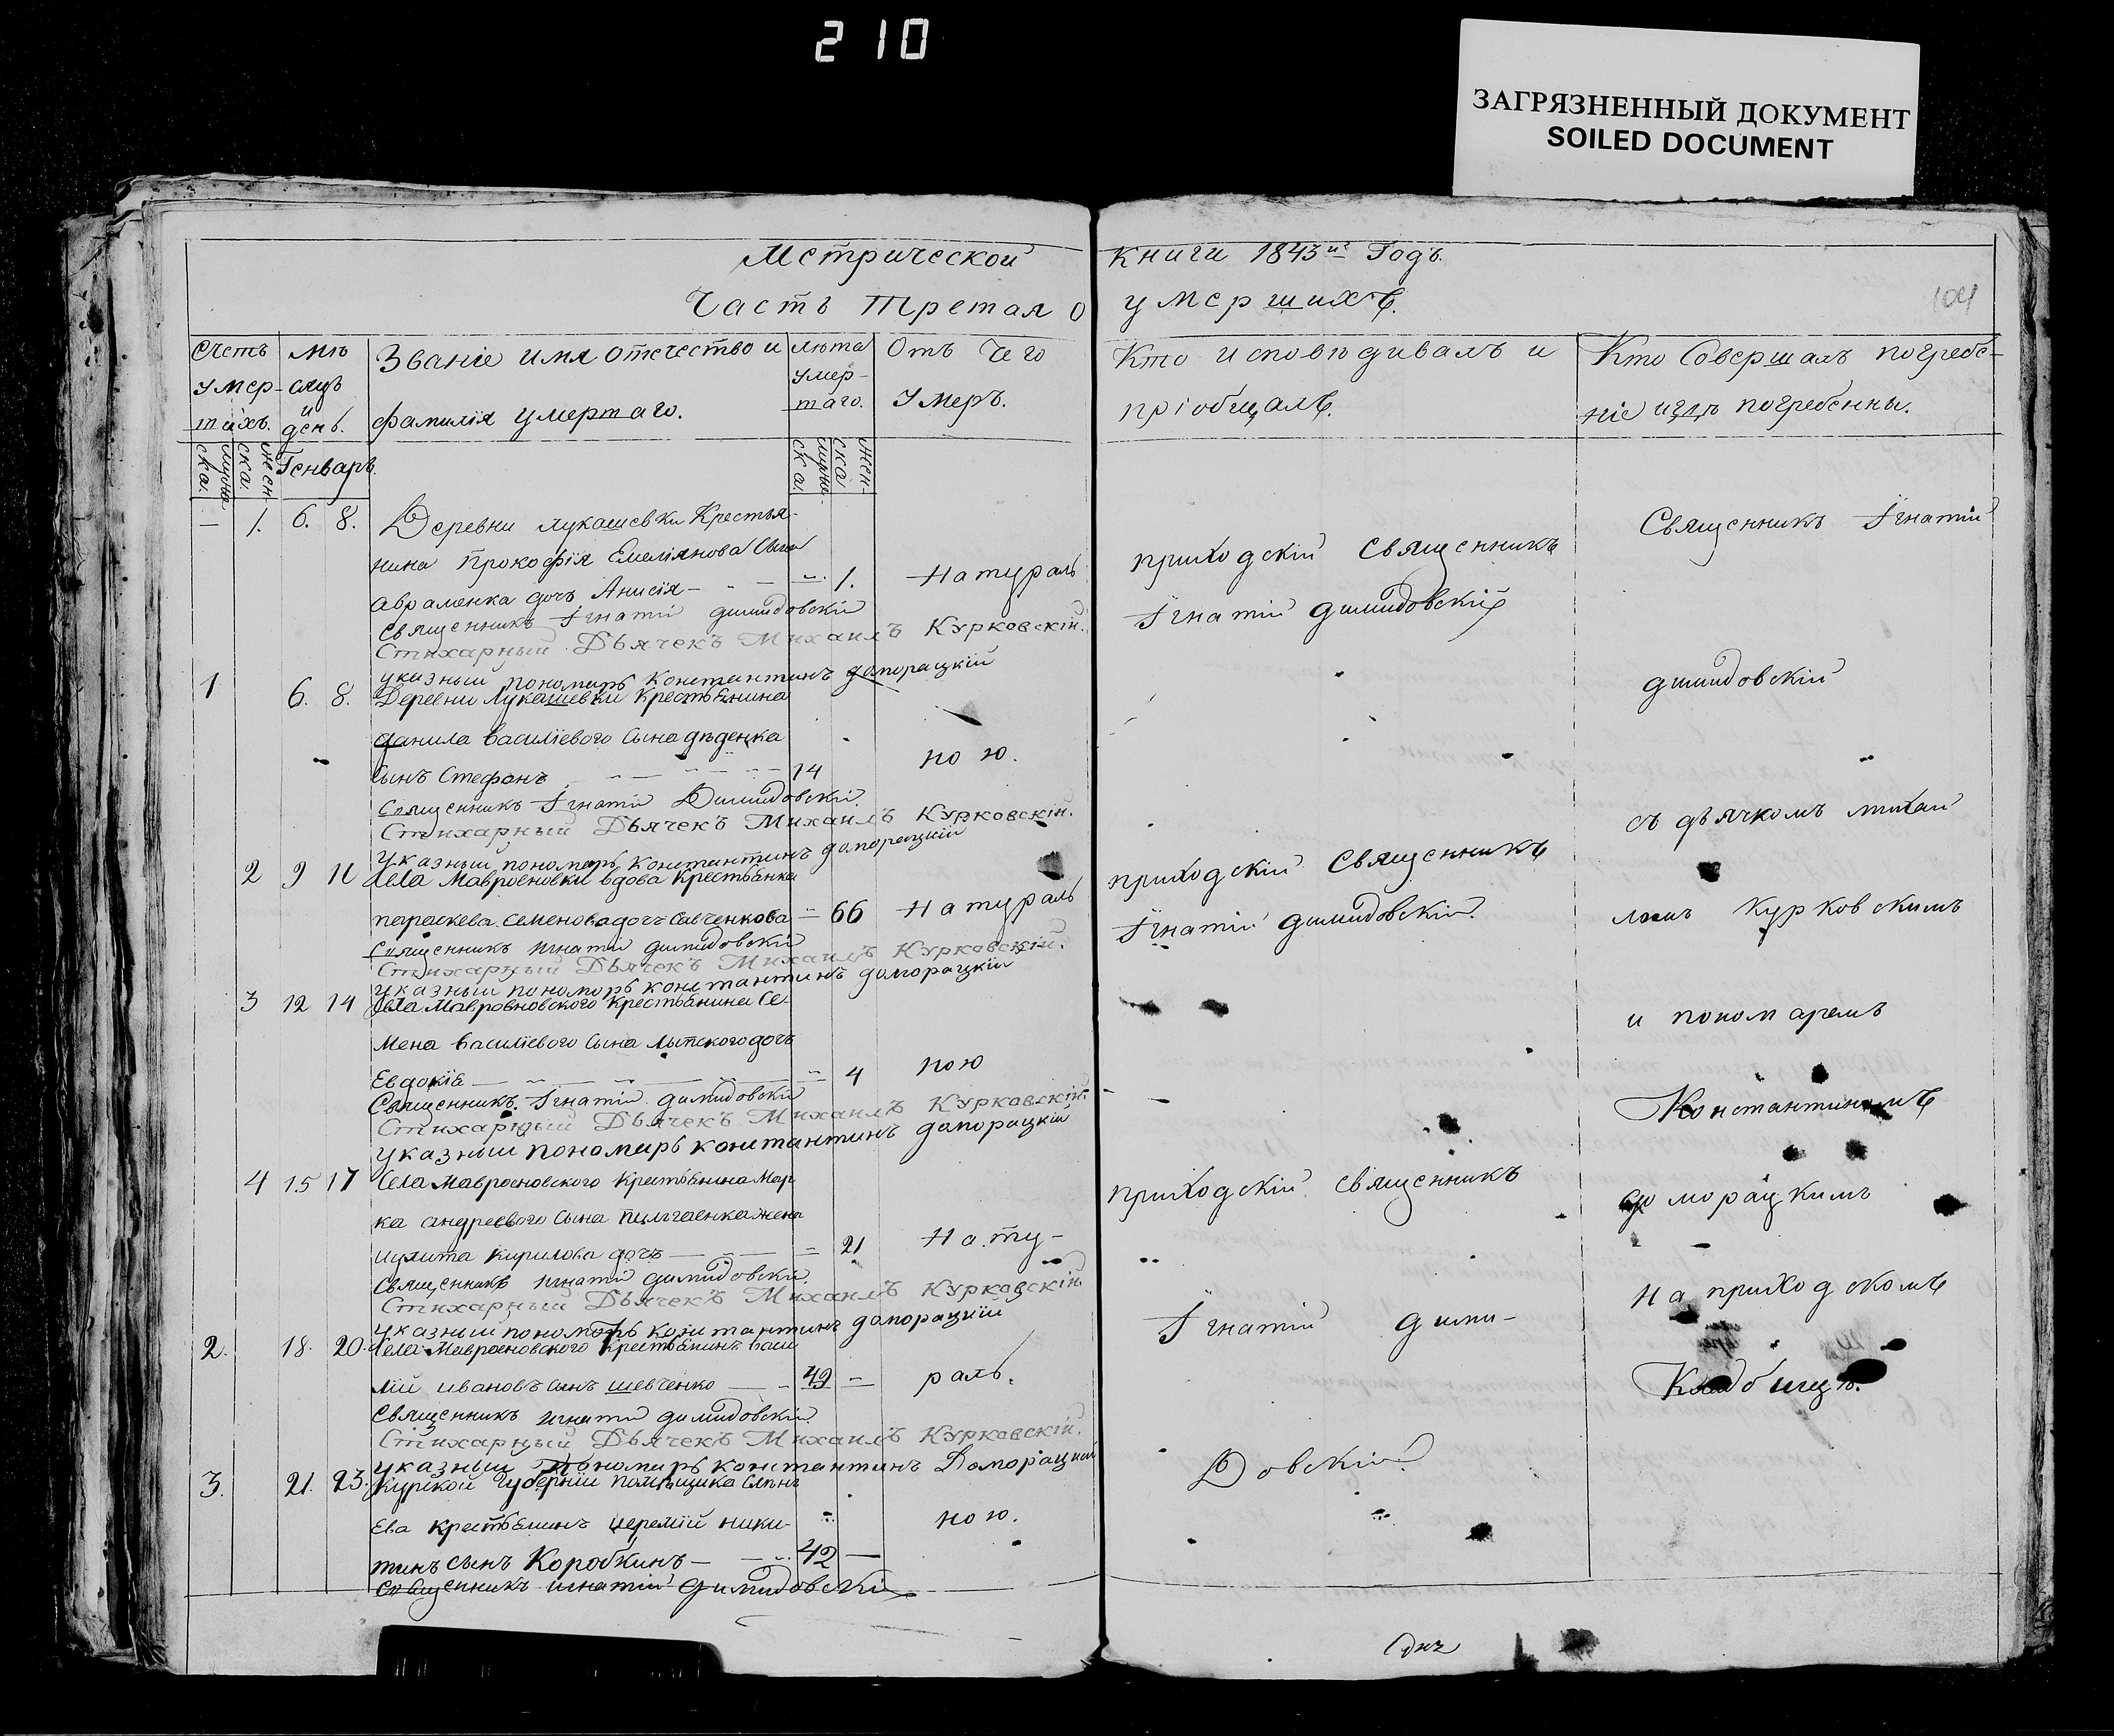 210
ЗАГРЯЗНЕННЫЙ ДОКУМЕНТ
SOILED DOCUMENT
Метрической книги 1843го Годъ.
Часть третая о умершихъ.
104
Счетъ умер-шихъ.
мѣ-сяцъ и день.
Званіе имя отечество и фамилія умершаго.
лѣта умер-шаго.
Отъ чего умеръ.
Кто исповѣдивалъ и пріобщалъ.
Кто Совершалъ погребе-ніе и гдѣ погребенны.
мужеска.
женска.
Генварь.
мужеска.
женска
— 1. 6. 8. Деревни лукашевки Крестья-
нина Прокофія Емеліянова Сына
Авраменка дочъ Анисія — 1. Натураль
Священникъ Ігнатій димидовскій
Стихарный Дьячекъ Михаилъ Курковскій.
указный пономарь константинъ доморацкій
1 6. 8. Деревни Лукашевки Крестьянина
данила василіевого Сына дѣденка
Сынъ Стефанъ 14 ною.
Священникъ Ігнатій Димидовскій.
Стихарный Дьячекъ Михаилъ Курковскій.
указный пономарь константинъ доморацкій
2 9 11 Села Мавроеновки вдова Крестьянка
параскева Семенова дочъ Савченкова — 66 Натураль
Священникъ игнатій димидовскій
Стихарный Дьячекъ Михаилъ Курковскій.
указный пономарь константинъ доморацкій
3 12 14 Села Мавроеновского Крестьянина Се-
мена василіевого Сына дочъ
Евдокіе — 4 ною
Священникъ Ігнатій димидовскій
Стихарный Дьячекъ Михаилъ Курковскій.
указный пономарь константинъ доморацкій
4 15 17 Села Мавроеновского Крестьянина Мар
ка андреевого Сына жена
кирилова дочъ — 21 Нату-
Священникъ игнатій димидовскій.
Стихарный Дьячекъ Михаилъ Курковскій.
указный пономарь константинъ доморацкій
2. 18. 20. Села Мавроеновского Крестьянинъ васи
лій ивановъ сынъ шевченко 49 — раль.
Священникъ игнатій димидовскій.
Стихарный Дьячекъ Михаилъ Курковскій.
указный Пономарь константинъ Доморацкій
3. 21. 23. Курской Губерніи помѣщика
Ева крестьянинъ иеремій ники- ною.
тинъ сынъ Коробкинъ — 42 —
Священникъ игнатій димидовскій
приходскій Священникъ
Ігнатій димидовскій
приходскій Священникъ
Ігнатій димидовскій.
приходскій священникъ
Ігнатій дими-
Довскій.
Священникъ Ігнатій
димидовскій
съ дьячкомъ михаи
ломъ курковскимъ
и пономаремъ
Константиномъ
доморацкимъ
на приходскомъ
Кладбищѣ.